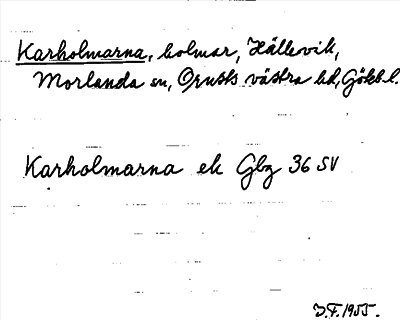 Karholmarna, holmar, Hällevik,
Morlanda sn, Orusts västra hd, Göteb. l.
Karholmarna ek Gbg 36 SV
J.F. 1955.